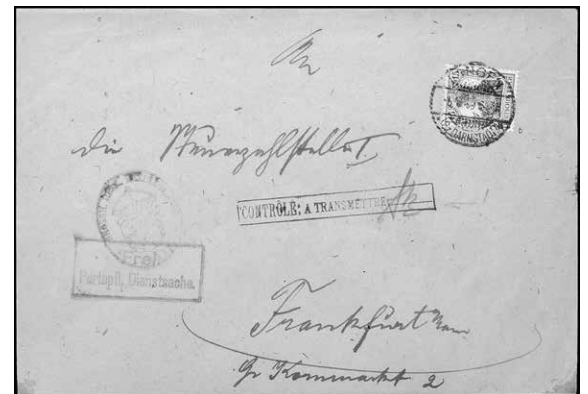 An
die Steuerzahlstelle I
CONTRÔLE: A TRANSMETTRE
Frei
Portopfl. Dienstsache.
Frankfurt
Gr Kornmarkt 2